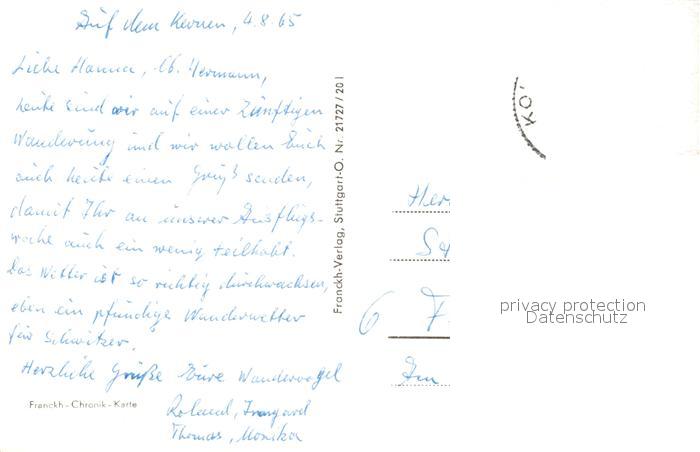 Auf dem Kernen, 4.8.65
Liebe Hanna, lb. Hermann,
heute sind wir auf einer zünftigen
Wanderung und wir wollen Euch
auch heute einen Gruß senden,
damit Ihr an unserer Ausflugs-
woche auch ein wenig teilhabt.
Das Wetter ist so richtig durchwachsen,
eben ein pfundige Wanderwetter
für Schwitzer.
Herzliche Grüße Eure Wandervogel
Roland, Irmgard
Thomas, Monika
Franckh-Chronik-Karte
Franckh-Verlag, Stuttgart-O. Nr. 21727/201
KÖ
Her
6 F
privacy protection
Datenschutz
Im